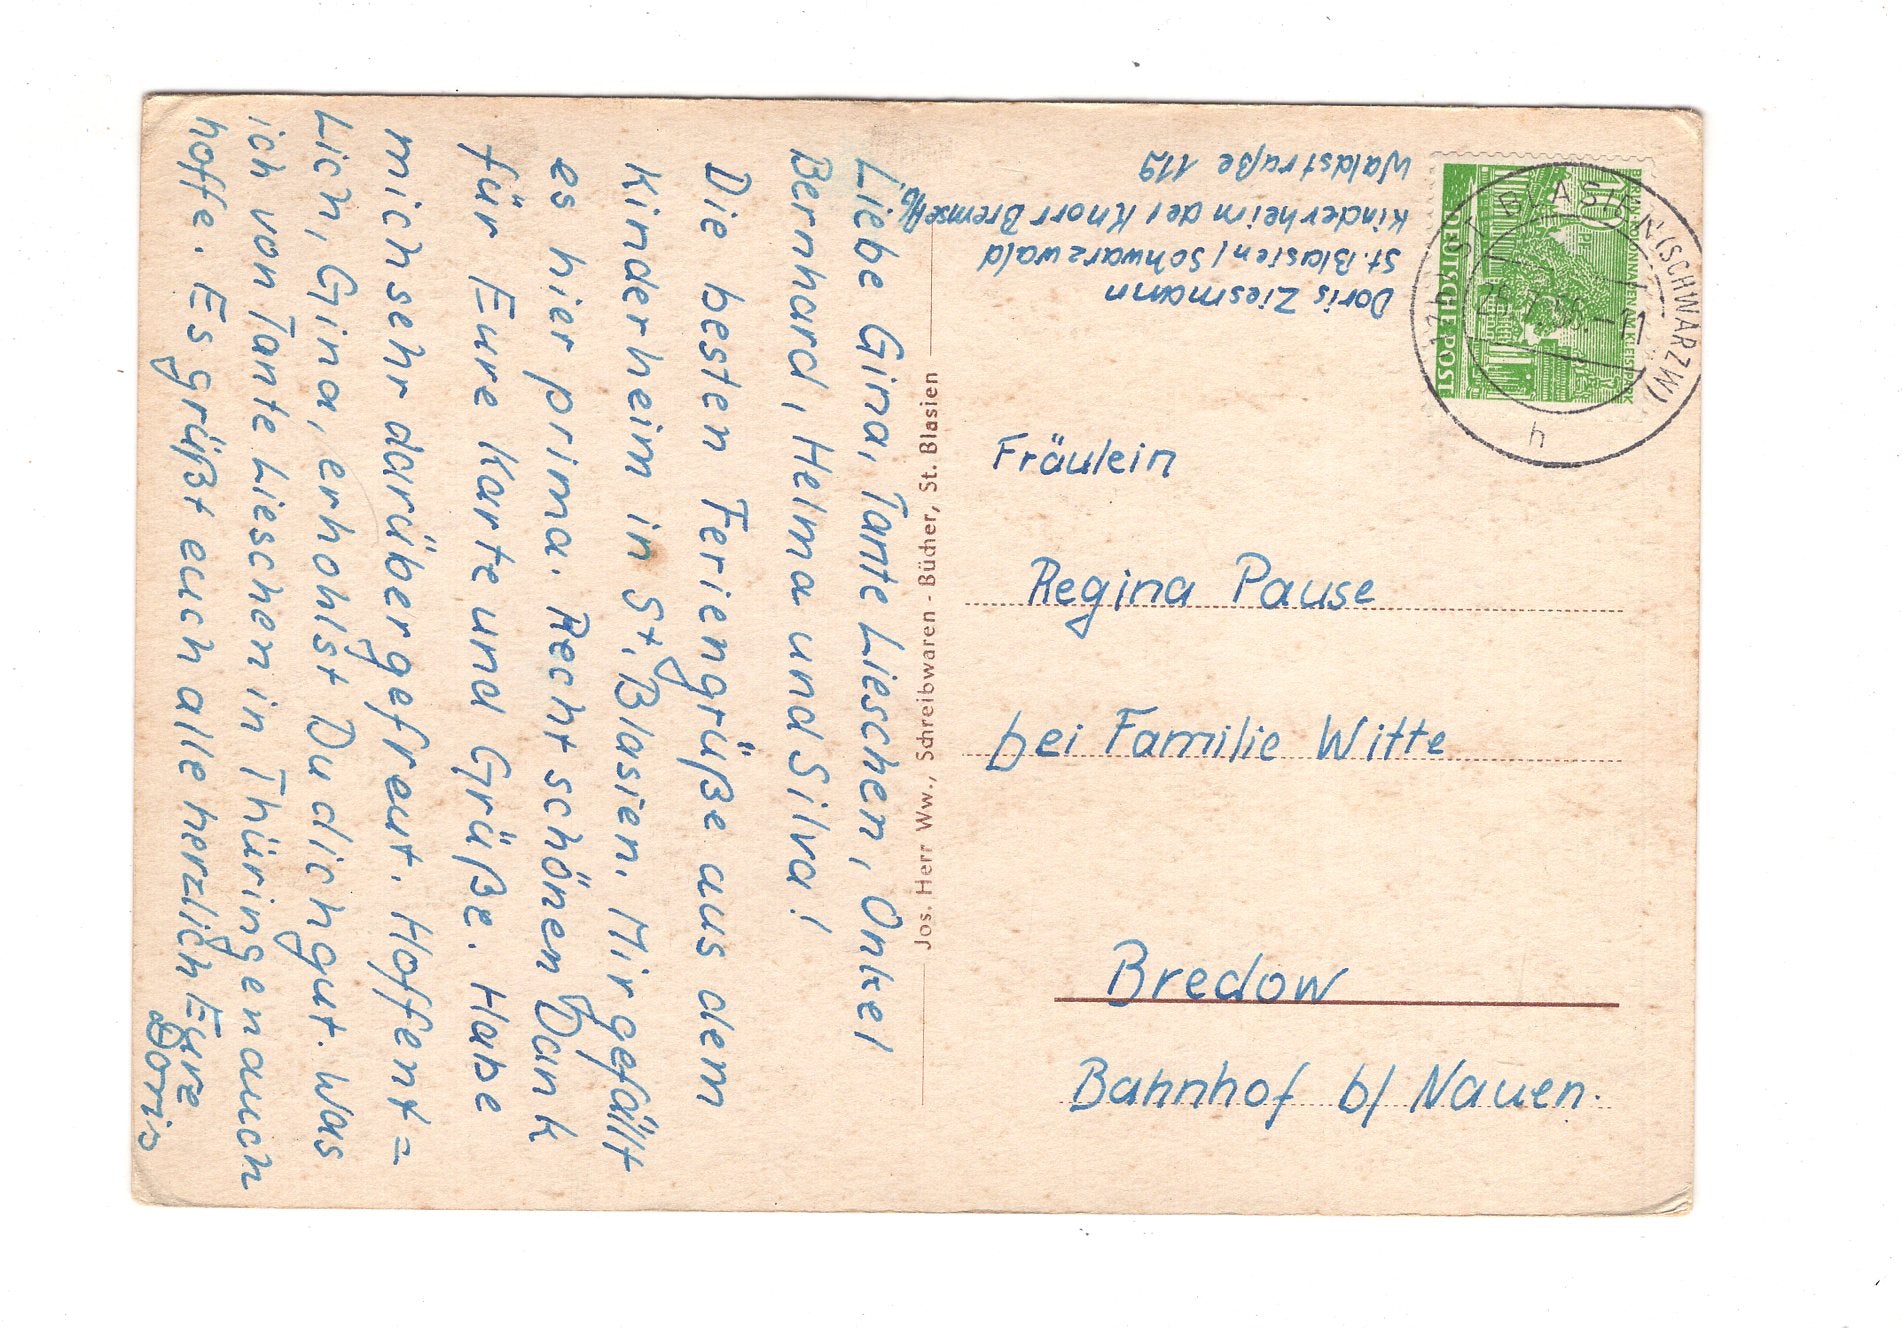 Liebe Gina, Tante Lieschen, Onkel
Bernhard, Helma und Silva!
Die besten Feriengrüße aus dem
Kinderheim in St. Blasien. Mir gefällt
es hier prima. Recht schönen Dank
für Eure Karte und Grüße. Habe
mich sehr darüber gefreut. Hoffent=
lich, Gina, erholst Du dich gut. Was
ich von Tante Lieschen in Thüringen auch
hoffe. Es grüßt euch alle herzlich Eure
Doris
Jos. Herr Ww., Schreibwaren - Bücher, St. Blasien
Doris Ziesmann
St. Blasien / Schwarzwald
Kinderheim der Knorr Bremse
Waldstraße 119
10
DEUTSCHE POST
ST. BLASIEN (SCHWARZW)
h
Fräulein
Regina Pause
bei Familie Witte
Bredow
Bahnhof b/ Nauen.